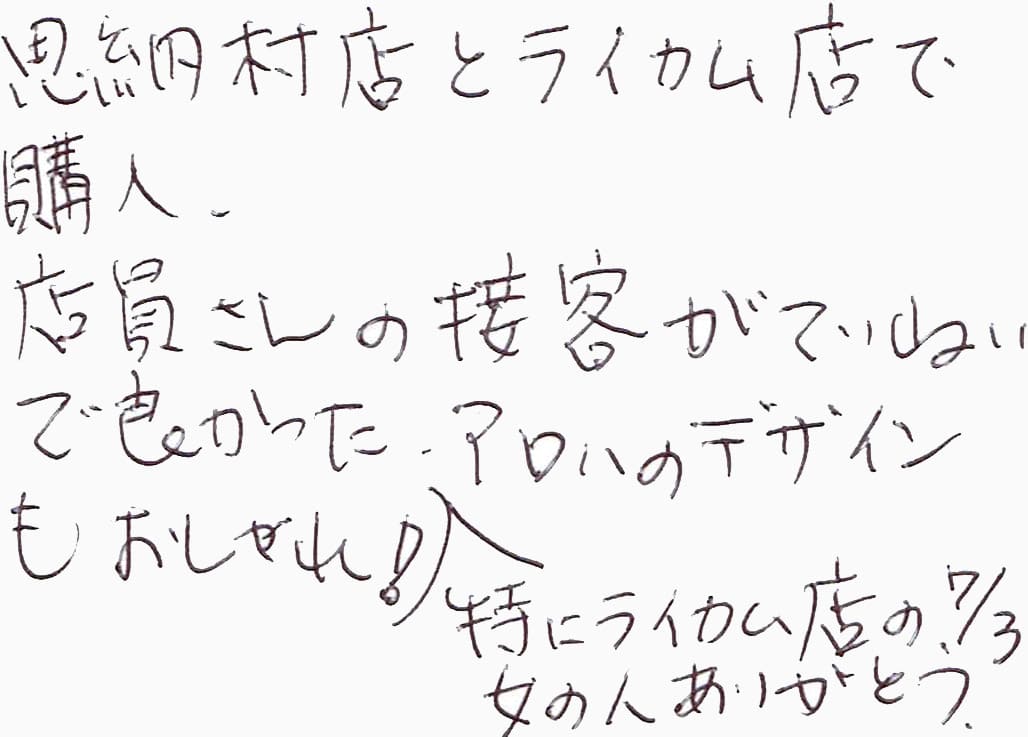 恩納村店とライカム店で
購入.
店員さんの接客がていねい
で良かった.アロハのデザイン
もおしゃれ!
特にライカム店の7/3
女の人ありがとう.